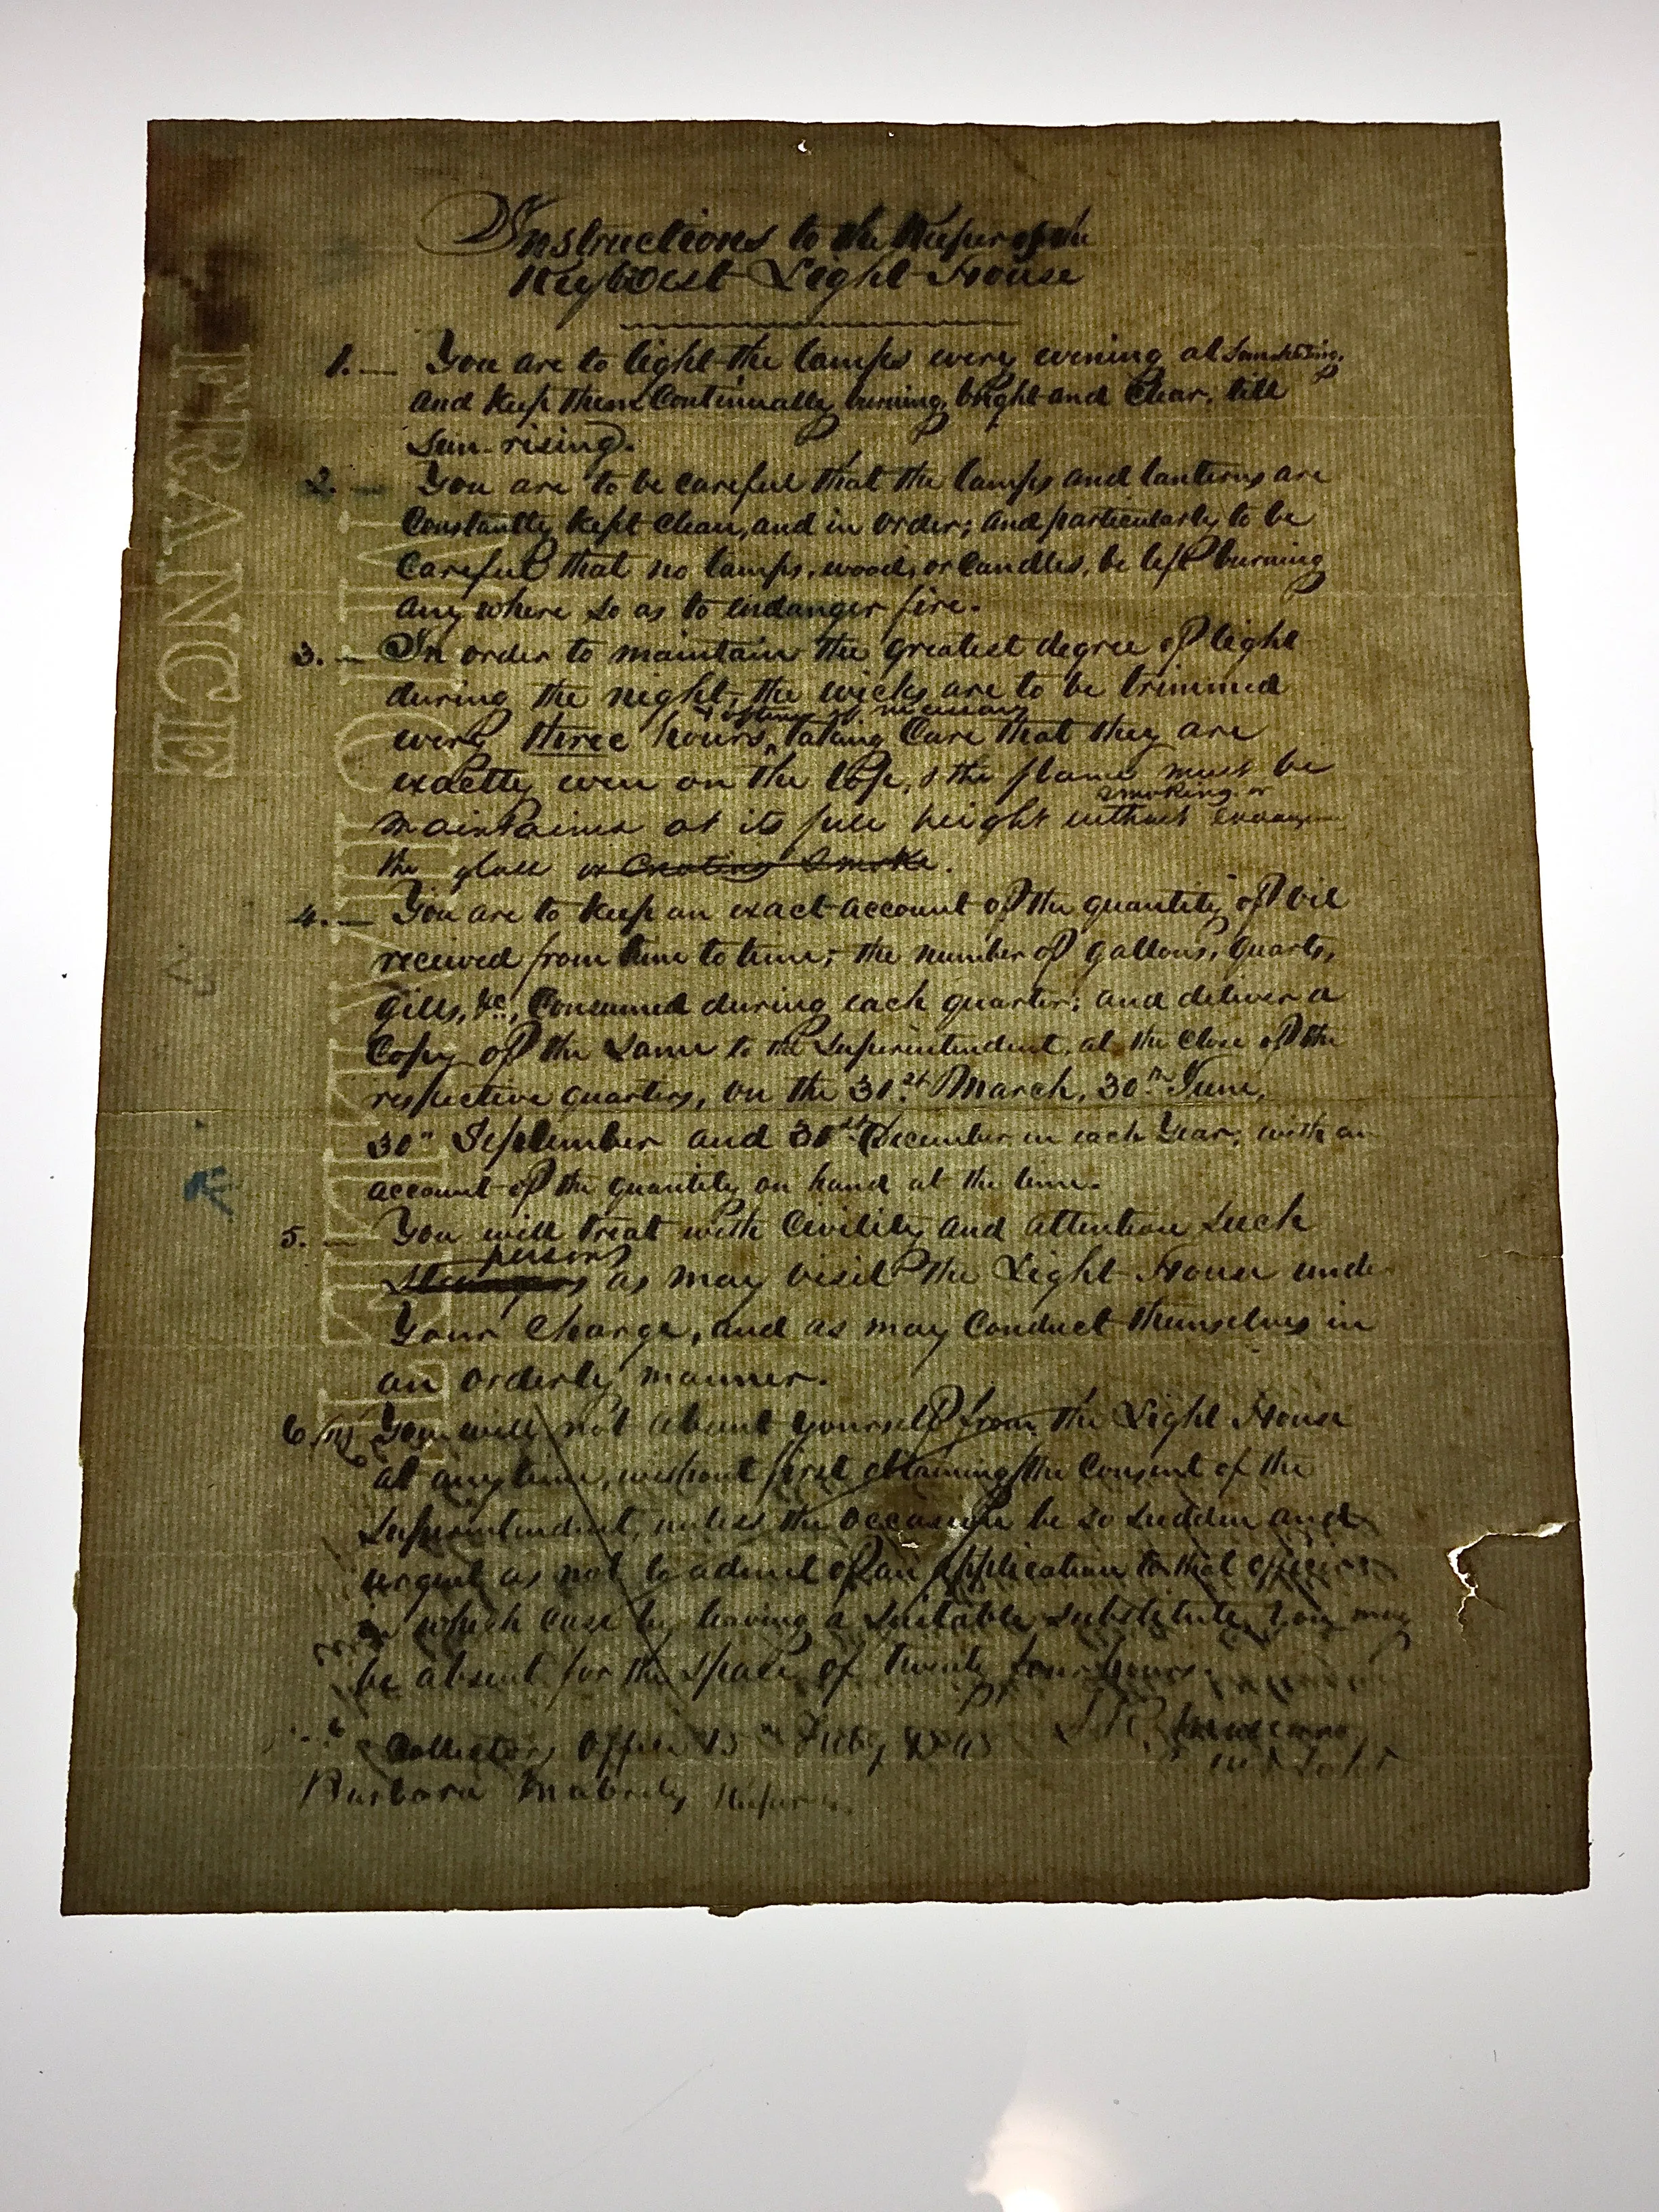 Instructions to the Keeper of the
Key West Light House
1. — You are to light the lamps every evening at Sun-setting,
and keep them Continually burning, bright and Clear, till
Sun-rising.
2. — You are to be careful that the lamps and lanterns are
Constantly kept clean, and in order; and particularly to be
Careful that no lamps, wood, or Candles, be left burning
any where so as to endanger fire.
3. — In order to maintain the greatest degree of light
during the night, the wicks are to be trimmed
every three hours, taking Care that they are
exactly even on the top, & the flame must be
smoking or
maintained at its full height without
the glass or Creating Smoke.
4. — You are to keep an exact account of the quantity of oil
received from time to time; the number of gallons, quarts,
gills, &c., Consumed during each quarter; and deliver a
Copy of the Same to the Superintendent, at the Close of the
respective quarters, on the 31st March, 30th June,
30th September and 31st December in each Year; with an
account of the quantity on hand at the time.
5. — You will treat with Civility and attention Such
persons
Strangers as may visit the Light House under
Your Charge, and as may Conduct themselves in
an orderly manner.
6. You will not absent yourself from the Light House
at any time, without first obtaining the Consent of the
Superintendent, unless the occasion be so sudden and
urgent as not to admit of an application to that officer
in which case by leaving a Suitable Substitute, you may
be absent for the space of twenty four hours.
Collectors Office 15th Feby
Barbara Mabrity Keeper
FRANCE